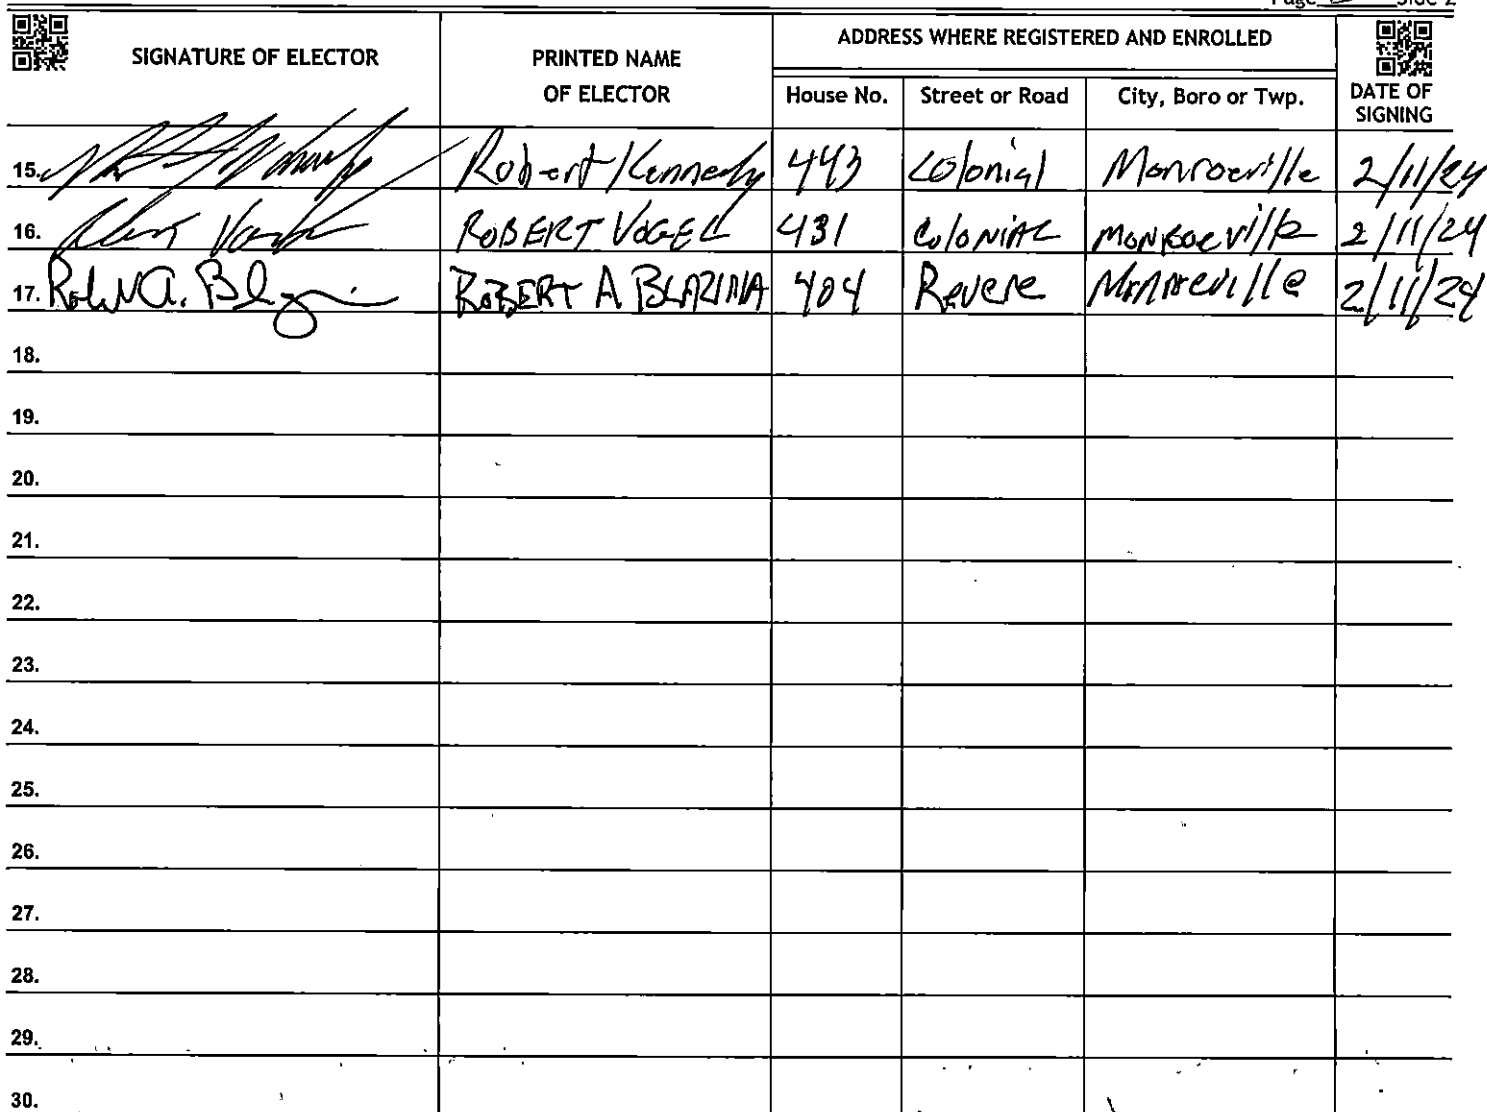 Page Side 2
SIGNATURE OF ELECTOR
PRINTED NAME
OF ELECTOR
ADDRESS WHERE REGISTERED AND ENROLLED
House No. Street or Road City, Boro or Twp.
DATE OF
SIGNING
15. Robert Kennedy 443 Colonial Monroeville 2/11/24
16. ROBERT VOGEL 431 COLONIAL MONROEVILLE 2/11/24
17. Robert A. ROBERT A BLAZINA 404 Revere Monroeville 2/11/24
18.
19.
20.
21.
22.
23.
24.
25.
26.
27.
28.
29.
30.